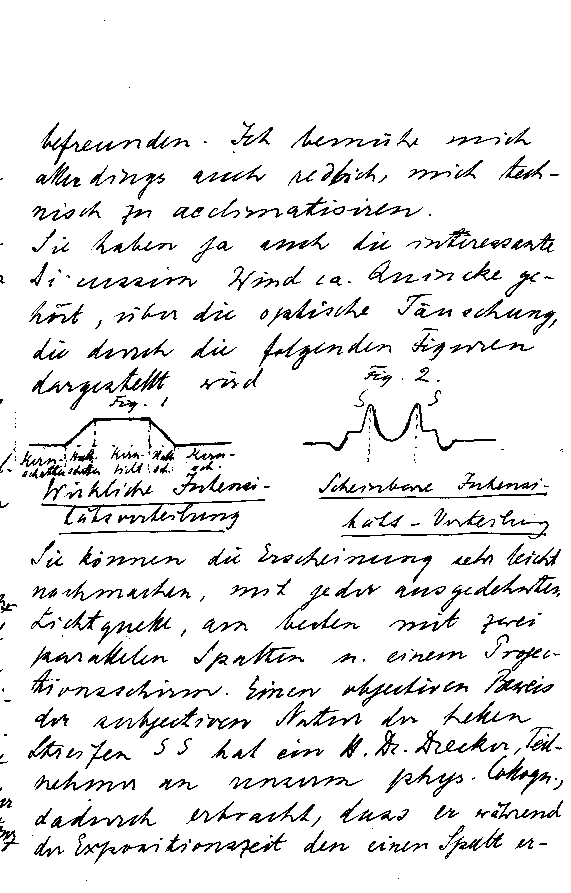 befreunden. Ich bemühe mich
allerdings auch redlich, mich tech-
nisch zu acclimatisiren.
Sie haben ja auch die interessante
Discussion Wind ca. Quincke ge-
hört, über die optische Täuschung,
die durch die folgenden Figuren
dargestellt wird
Fig. 1
Fig. 2.
S S
Kern- Halb- Kern- Halb- Kern-
schatten schatten licht sch. sch.
Wirkliche Intensi-
tätsverteilung
Scheinbare Intensi-
täts-Verteilung
Sie können die Erscheinung sehr leicht
nachmachen, mit jeder ausgedehnten
Lichtquelle, am besten mit zwei
parallelen Spalten u. einem Projec-
tionsschirm. Einen objectiven Beweis
der subjectiven Natur der hellen
Streifen S S hat ein H. Dr. Drecker, Teil-
nehmer an unserm phys. Colloqu.,
dadurch erbracht, dass er während
der Expositionszeit den einen Spalt er-